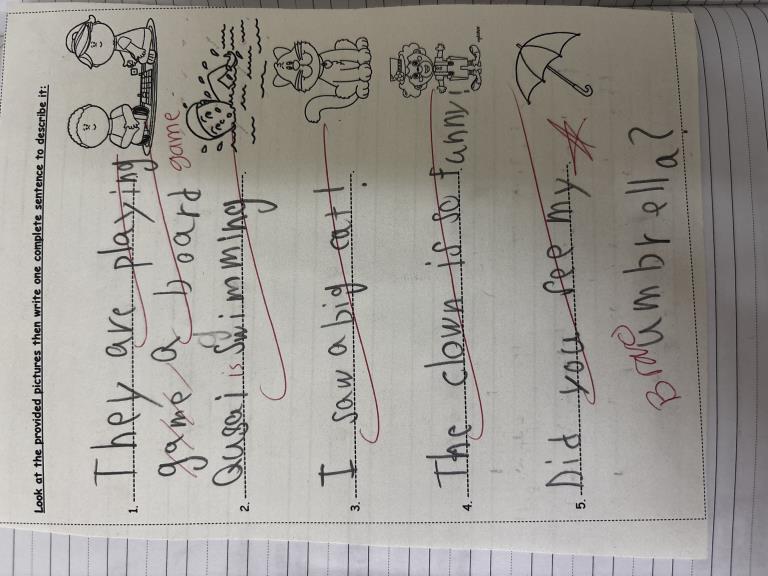 Look at the provided pictures then write one complete sentence to describe it:
1. They are playing
game a board game
2. Qusai is swimming.
3. I saw a big cat!.
4. The clown is so funny!
5. Did you see my
umbrella?
Bravo